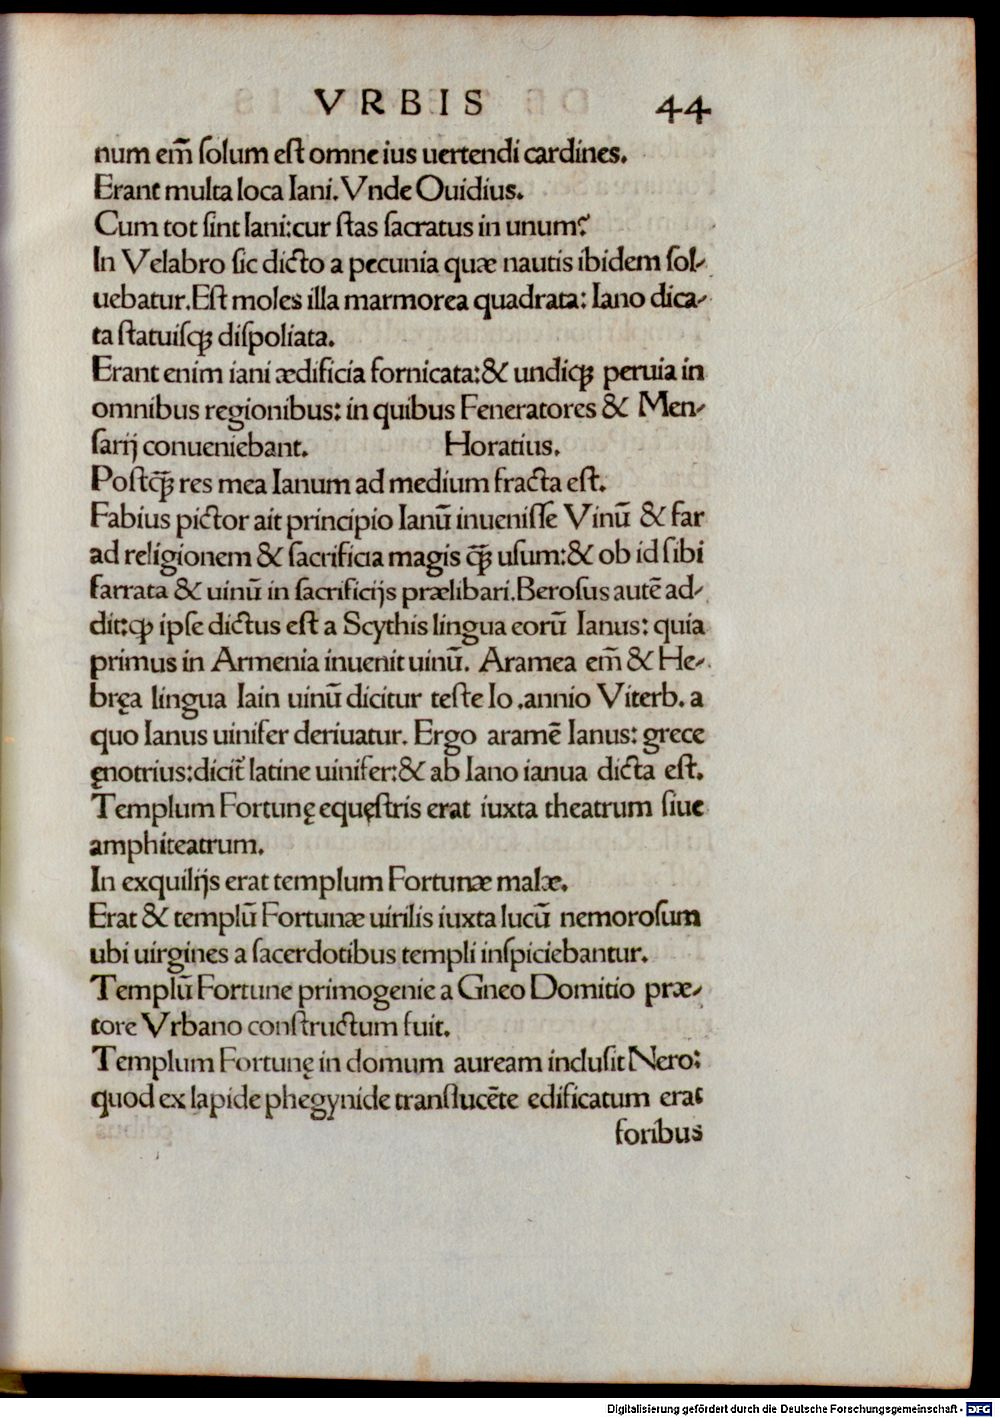 VRBIS 44
num em̃ ſolum eſt omne ius uertendi cardines.
Erant multa loca Iani. Vnde Ouidius.
Cum tot ſint Iani: cur ſtas ſacratus in unum?
In Velabro ſic dicto a pecunia quæ nautis ibidem ſol-
uebatur. Eſt moles illa marmorea quadrata: Iano dica-
ta ſtatuiſqꝫ diſpoliata.
Erant enim iani ædificia fornicata: & undiqꝫ peruia in
omnibus regionibus: in quibus Feneratores & Men-
ſarij conueniebant. Horatius.
Poſtqꝫ̃ res mea Ianum ad medium fracta eſt.
Fabius pictor ait principio Ianũ inueniſſe Vinũ & far
ad religionem & ſacrificia magis qꝫ̃ uſum: & ob id ſibi
farrata & uinũ in ſacrificijs prælibari. Beroſus autẽ ad-
dit: ꝙ ipſe dictus eſt a Scythis lingua eorũ Ianus: quia
primus in Armenia inuenit uinũ. Aramea em̃ & He-
bręa lingua Iain uinũ dicitur teſte Io. annio Viterb. a
quo Ianus uinifer deriuatur. Ergo aramẽ Ianus: grece
ęnotrius: dicit̃ latine uinifer: & ab Iano ianua dicta eſt.
Templum Fortunę equęſtris erat iuxta theatrum ſiue
amphiteatrum.
In exquilijs erat templum Fortunæ malæ.
Erat & templũ Fortunæ uirilis iuxta lucũ nemoroſum
ubi uirgines a ſacerdotibus templi inſpiciebantur.
Templũ Fortune primogenie a Gneo Domitio præ-
tore Vrbano conſtructum fuit.
Templum Fortunę in domum auream incluſit Nero:
quod ex lapide phegynide tranſlucẽte edificatum erat
foribus
Digitalisierung gefördert durch die Deutsche Forschungsgemeinschaft - DFG